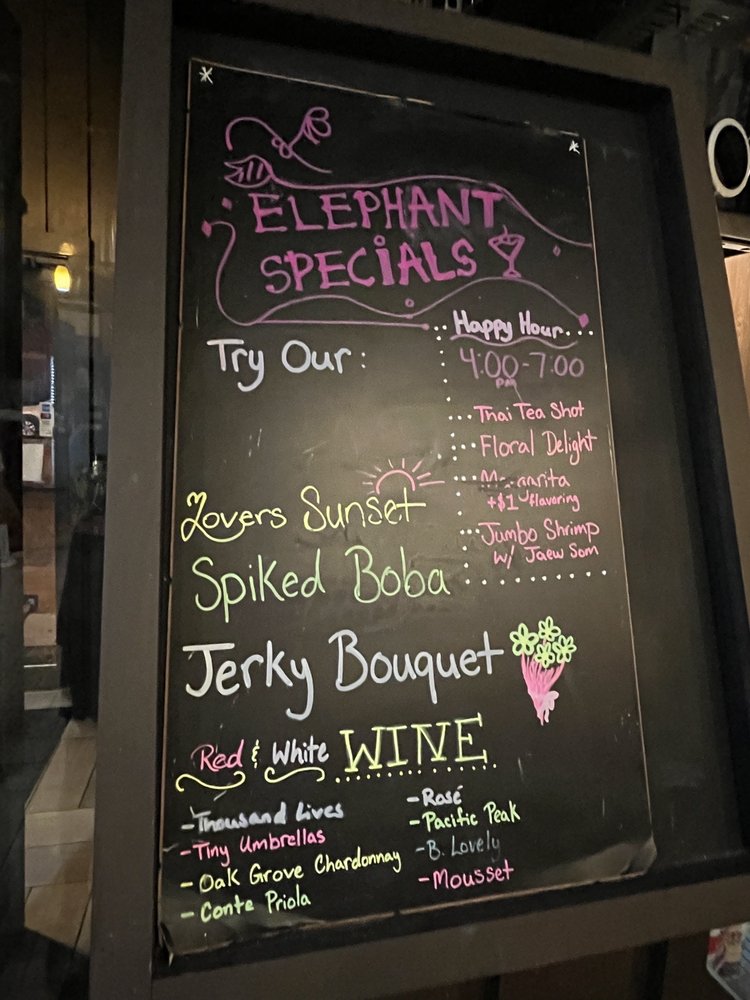 ELEPHANT
SPECiALS
Happy Hour
4:00-7:00
PM
Thai Tea Shot
Floral Delight
Margarita
+$1 flavoring
Jumbo Shrimp
w/ Jaew Som
Try Our:
Lovers Sunset
Spiked Boba
Jerky Bouquet
Red & White WINE
-Thousand Lives
-Tiny Umbrellas
-Oak Grove Chardonnay
-Conte Priola
-Rosé
-Pacific Peak
-B. Lovely
-Mousset